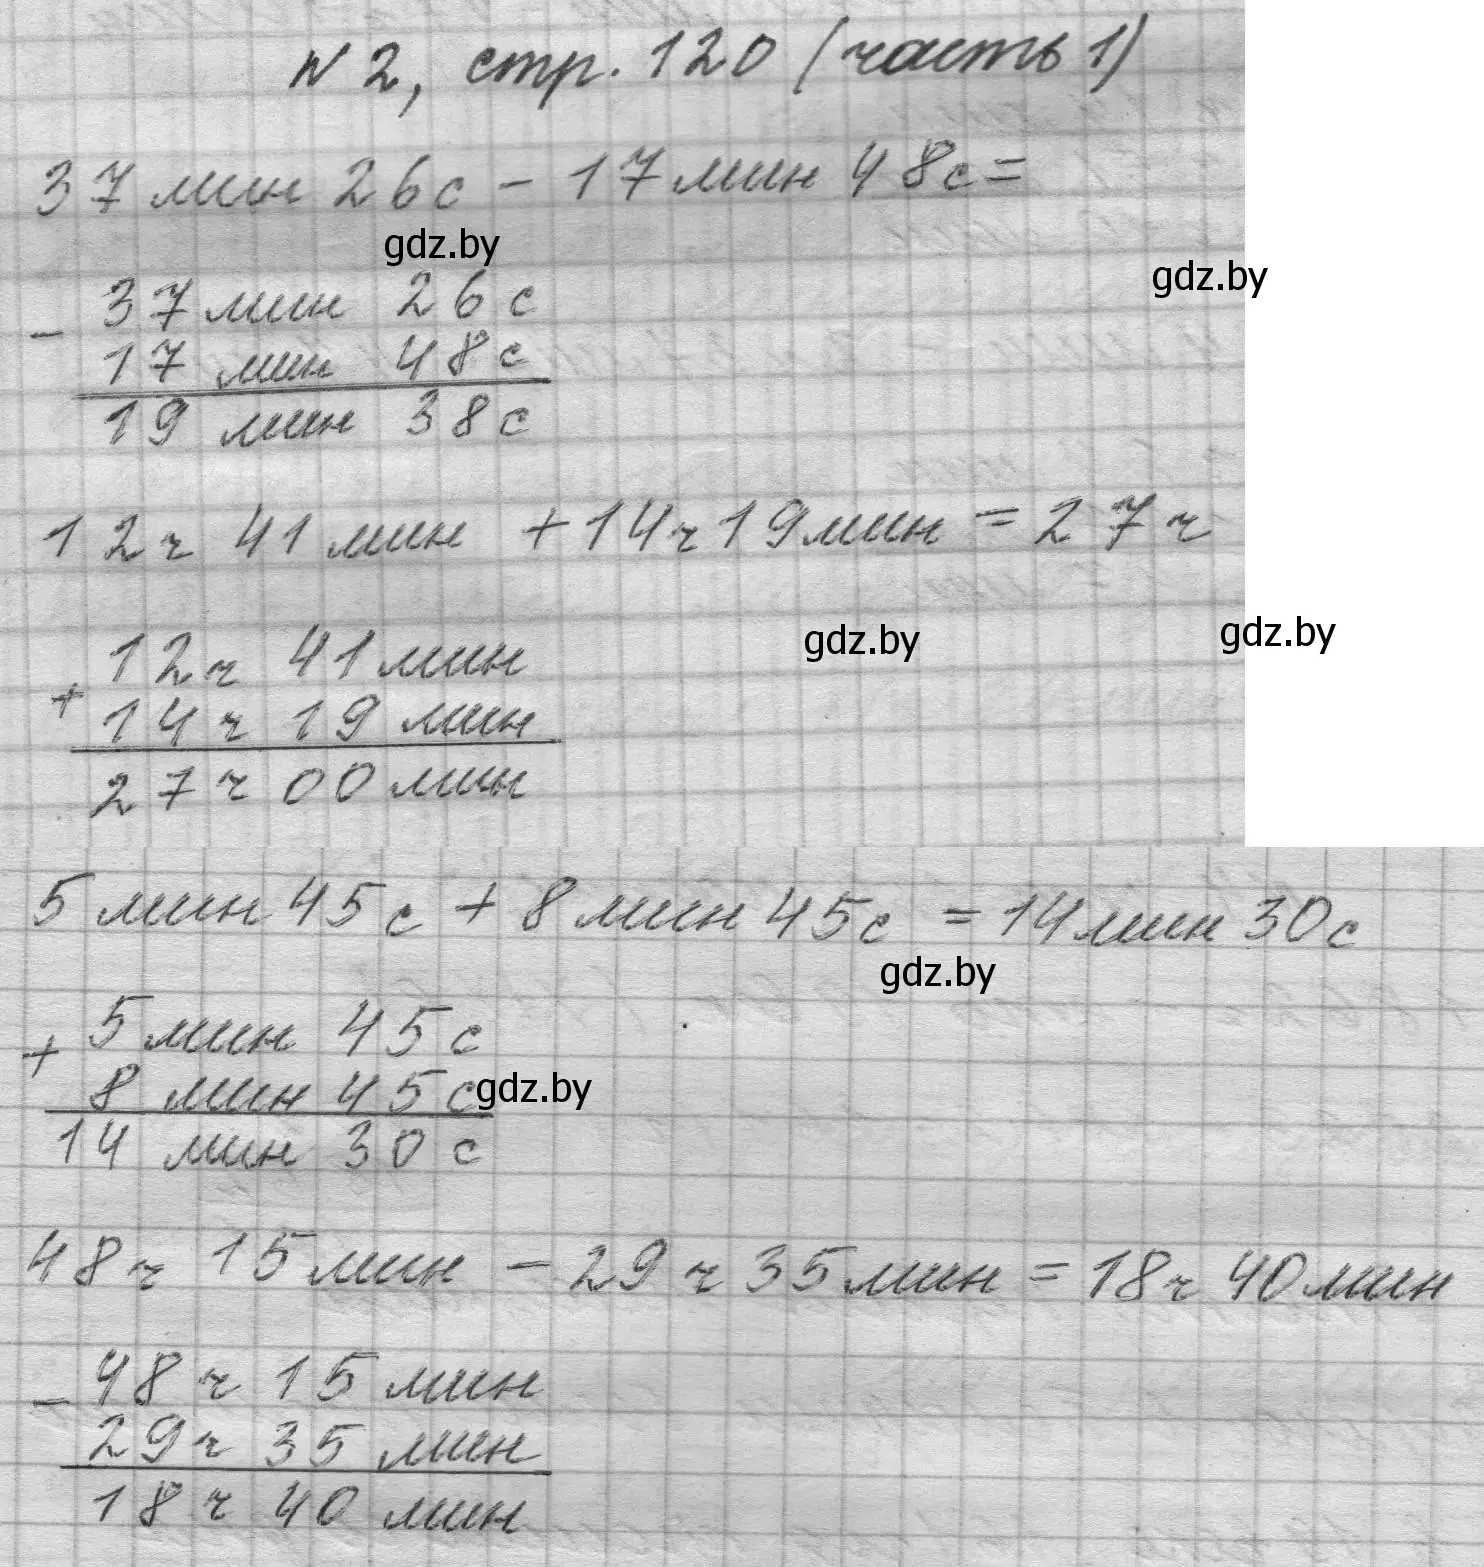 N 2, стр. 120 (часть 1)
37 мин 26 с - 17 мин 48 с =
gdz.by
gdz.by
- 37 мин 26 с
17 мин 48 с
19 мин 38 с
12 ч 41 мин + 14 ч 19 мин = 27 ч
gdz.by
gdz.by
+ 12 ч 41 мин
14 ч 19 мин
27 ч 00 мин
5 мин 45 с + 8 мин 45 с = 14 мин 30 с
gdz.by
+ 5 мин 45 с
8 мин 45 с
gdz.by
14 мин 30 с
48 ч 15 мин - 29 ч 35 мин = 18 ч 40 мин
- 48 ч 15 мин
29 ч 35 мин
18 ч 40 мин